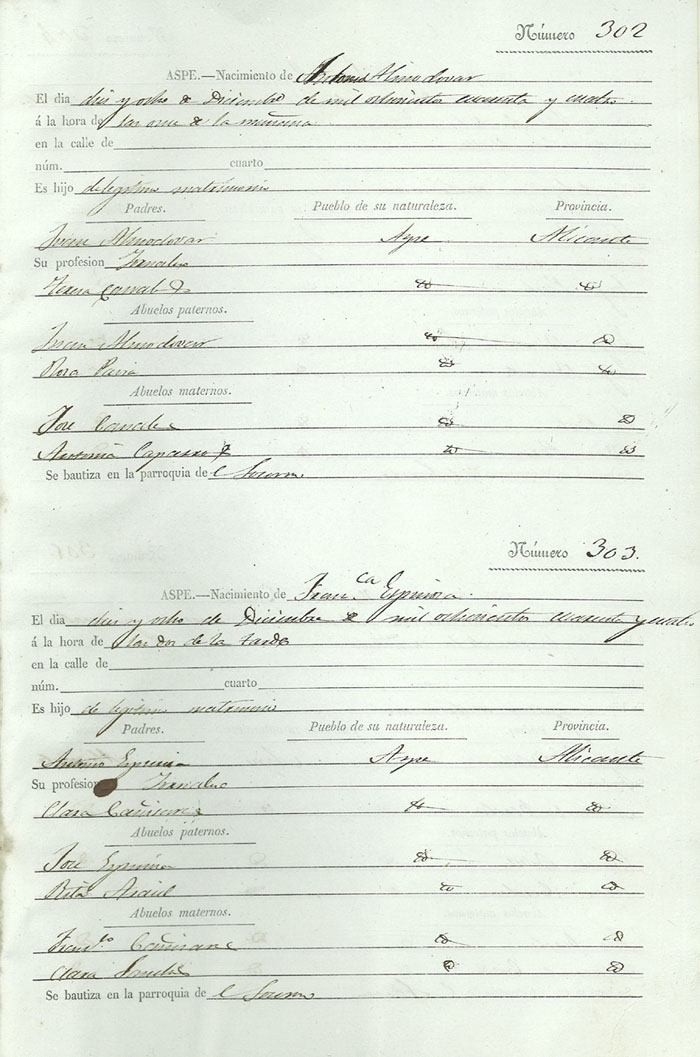 Número 302
ASPE.—Nacimiento de Antonio Almodovar
El dia diez y ocho de Diciembre de mil ochocientos cuarenta y cuatro
á la hora de las once de la mañana
en la calle de
núm. cuarto
Es hijo de legitimo matrimonio
Padres. Pueblo de su naturaleza. Provincia.
Juan Almodovar Aspe Alicante
Su profesion Jornalero
Teresa
Abuelos paternos.
Juan Almodovar
Rosa Parra
Abuelos maternos.
Jose
Antonia
Se bautiza en la parroquia de l Socorro
Número 303.
ASPE.—Nacimiento de Fran.ca Espinosa
El dia diez y ocho de Diciembre de mil ochocientos cuarenta y cuatro
á la hora de las dos de la tarde
en la calle de
núm. cuarto
Es hijo de legitimo matrimonio
Padres. Pueblo de su naturaleza. Provincia.
Antonio Espinosa Aspe Alicante
Su profesion Jornalero
Clara
Abuelos paternos.
Jose Espinosa
Rita
Abuelos maternos.
Clara
Se bautiza en la parroquia de l Socorro